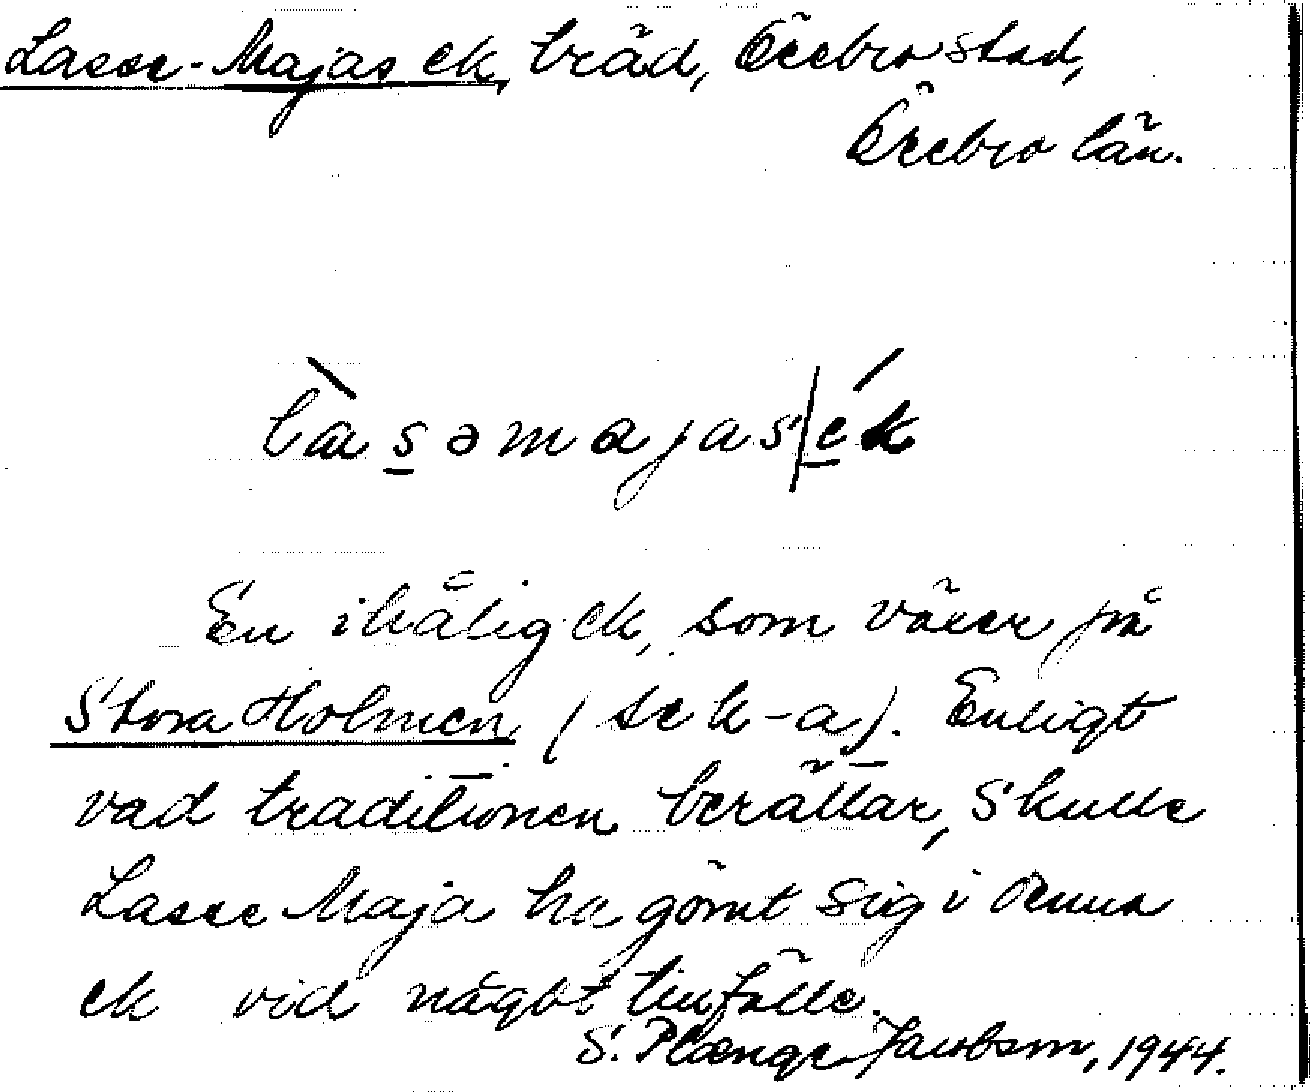 Lasse-Majas ek, träd, Örebro stad,
Örebro län.
l̀asəmajas|ék
En ihålig ek, som växer på
Stora Holmen (se k-a). Enligt
vad traditionen berättar, skulle
Lasse Maja ha gömt sig i denna
ek vid något tillfälle.
S. Plænge Jacobson, 1944.